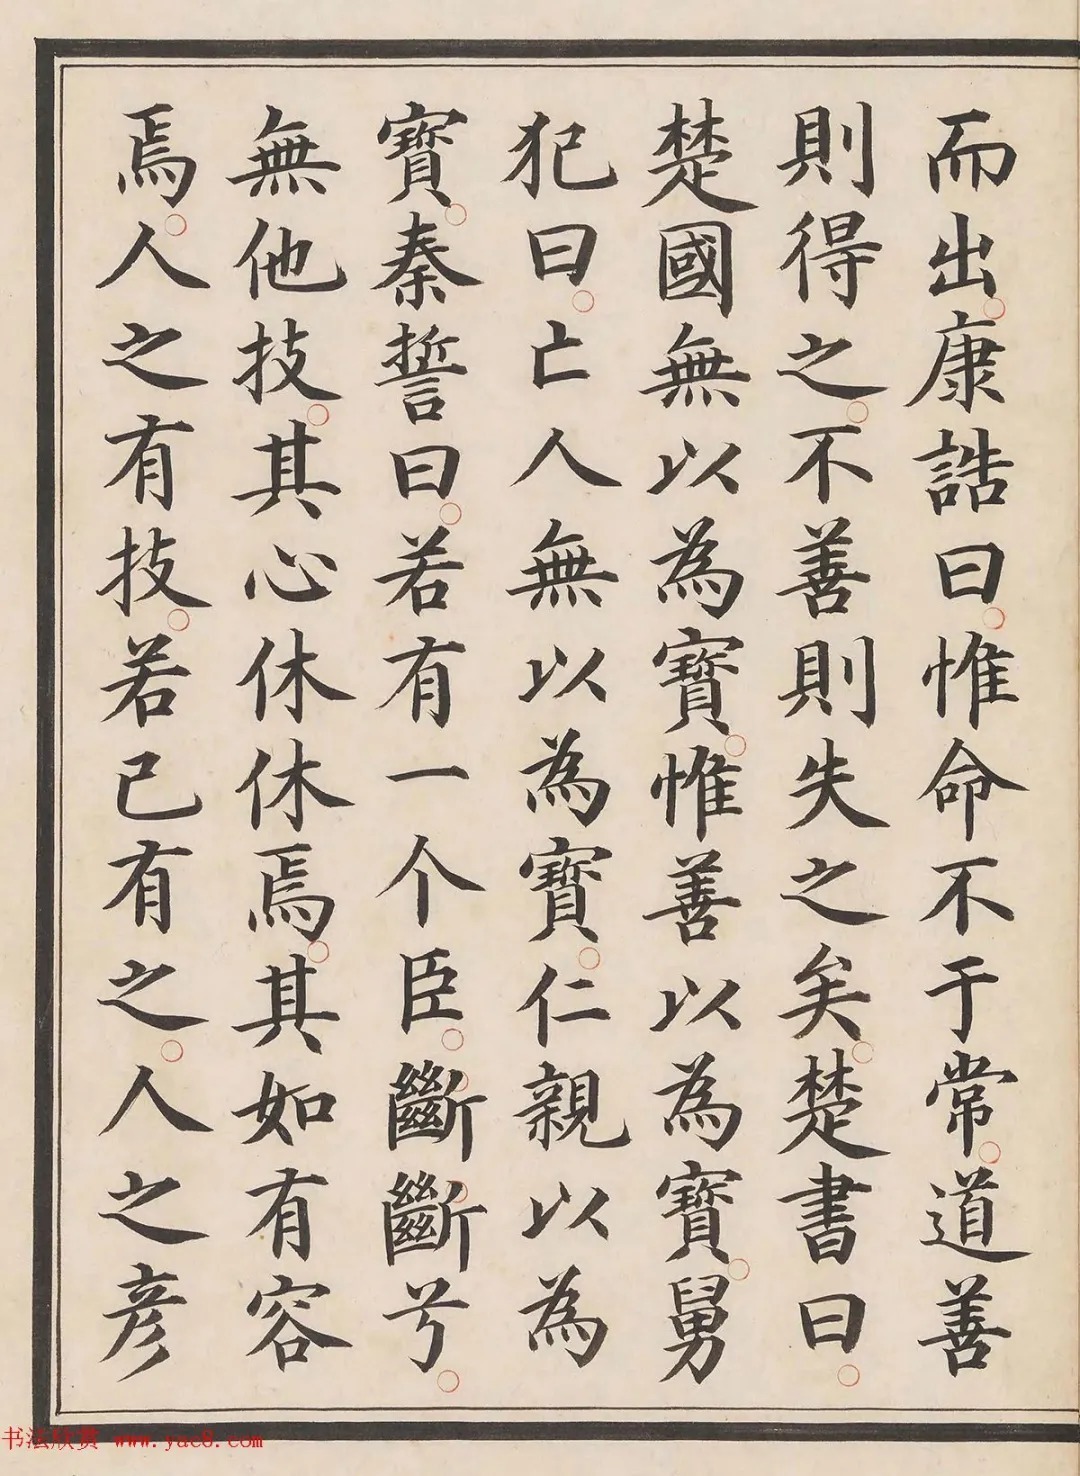 而出康誥曰惟命不于常道善
則得之不善則失之矣楚書曰
楚國無以為寶惟善以為寶舅
犯曰亡人無以為寶仁親以為
寶秦誓曰若有一个臣斷斷兮
無他技其心休休焉其如有容
焉人之有技若己有之人之彥
书法欣赏 www.yac8.com